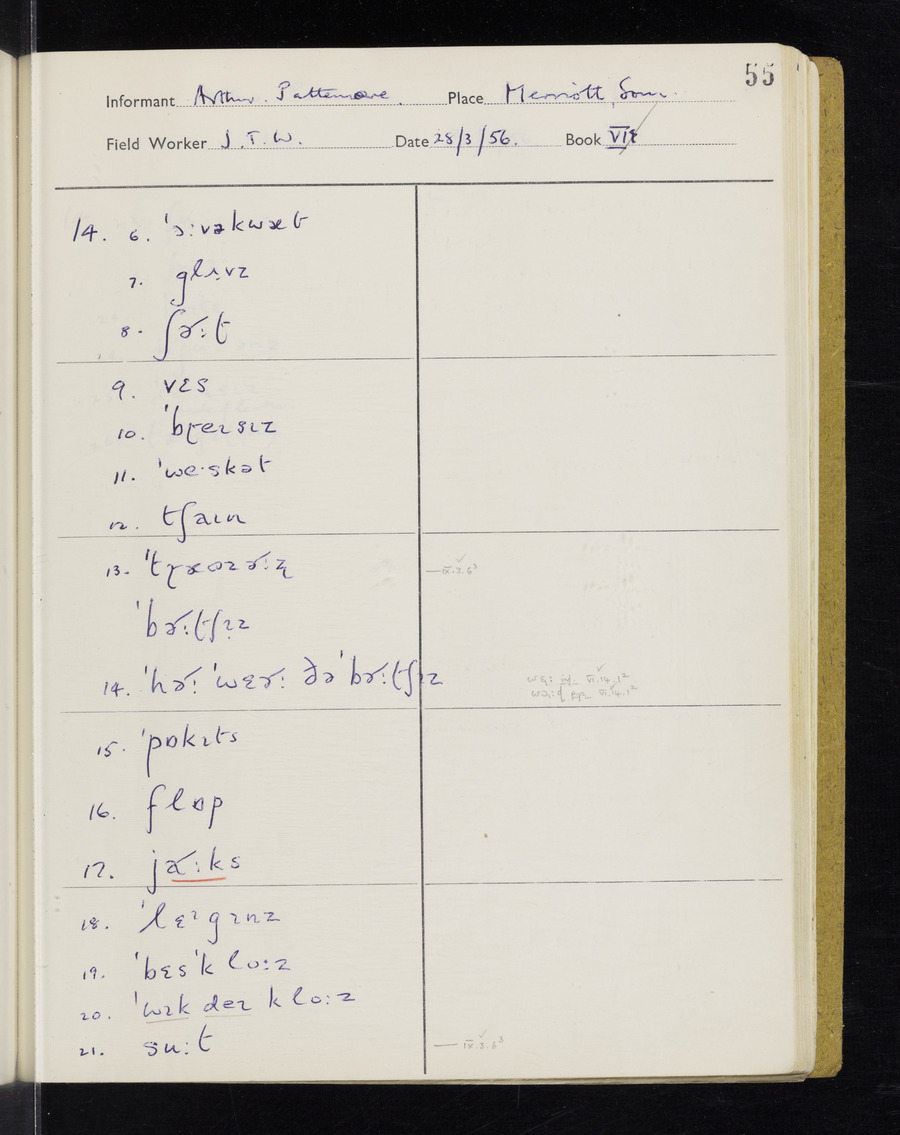 55
Informant Arthur. Pattemore. Place Merriott, Som.
Field Worker J.T.W. Date 28/3/56. Book VI
14. 6. ˈɔ:vəkwæt
7. glʌvz
8. ʃəʴ:t
9. vɛs
10. ˈbɽeɪsɪz
11. ˈwe·skət
12. tʃaɪn
13. ˈtɽæʊzəʴ:z̢
— IX.3.6³
ˈbəʴ:tʃɪz
14. ˈhəʴ: ˈwɛəʴ: ðə ˈbəʴ:tʃɪz
VI.14.1²
VI.14.1²
15. ˈpɒkɪts
16. flɒp
17. jaʴ:ks
18. ˈlɛᶦgɪnz
19. ˈbɛsˈklo:z
20. ˈwɪk deɪ klo:z
21. su:t
— IX.3.6³